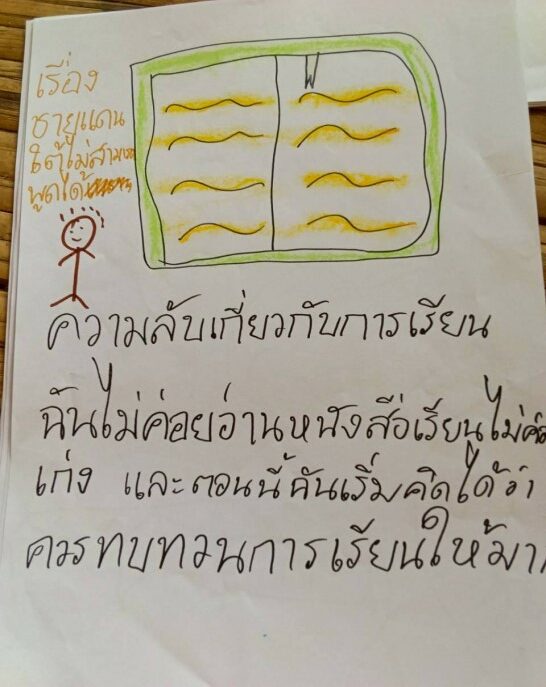 เรื่อง
ชายแดน
ใต้ไม่สามารถ
พูดได้
ความลับเกี่ยวกับการเรียน
ฉันไม่ค่อยอ่านหนังสือเรียนไม่ค่อ
เก่ง และตอนนี้ฉันเริ่มคิดได้ว่า
ควรทบทวนการเรียนให้มา